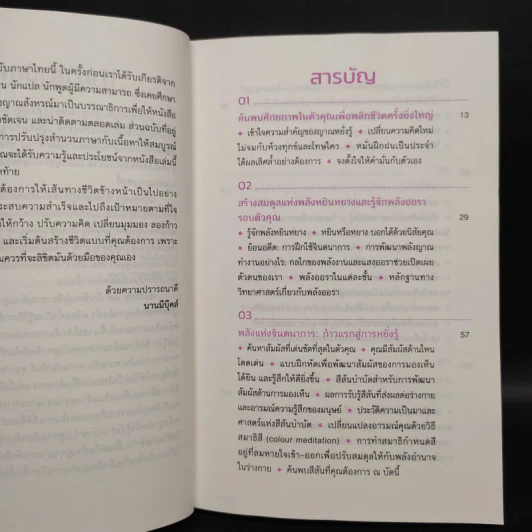 บับภาษาไทยนี้ ในครั้งก่อนเราได้รับเกียรติจาก
น นักแปล นักพูดผู้มีความสามารถ ซึ่งเคยศึกษา
ญาณสังหรณ์มาเป็นบรรณาธิการเพื่อให้หนังสือ
ชัดเจน และน่าติดตามตลอดเล่ม ส่วนฉบับที่อยู่
การปรับปรุงสำนวนภาษากับเนื้อหาให้สมบูรณ์
ณจะได้รับความรู้และประโยชน์จากหนังสือเล่มนี้
ท้าย
ต้องการให้เส้นทางชีวิตข้างหน้าเป็นไปอย่าง
ะสบความสำเร็จและไปถึงเป้าหมายตามที่ใจ
ให้กว้าง ปรับความคิด เปลี่ยนมุมมอง ลองก้าว
และเริ่มต้นสร้างชีวิตแบบที่คุณต้องการ เพราะ
ควรที่จะลิขิตมันด้วยมือของคุณเอง
ด้วยความปรารถนาดี
นานมีบุ๊คส์
สารบัญ
01
ค้นพบศักยภาพในตัวคุณเพื่อพลิกชีวิตครั้งยิ่งใหญ่ 13
✦ เข้าใจความสำคัญของญาณหยั่งรู้ ✦ เปลี่ยนความคิดใหม่
ไม่จมกับห้วงทุกข์และโทษใคร ✦ หมั่นฝึกฝนเป็นประจำ
ได้ผลเลิศล้ำอย่างต้องการ ✦ จงตั้งใจให้คำมั่นกับตัวเอง
02
สร้างสมดุลแห่งพลังหยินหยางและรู้จักพลังออรา
รอบตัวคุณ 29
✦ รู้จักพลังหยินหยาง ✦ หยินหรือหยาง บอกได้ด้วยนิสัยคุณ
✦ ย้อนอดีต: การฝึกใช้จินตนาการ ✦ การพัฒนาพลังญาณ
ทำงานอย่างไร: กลไกของพลังงานและแสงออราช่วยเปิดเผย
ตัวตนของเรา ✦ พลังออราในแต่ละชั้น ✦ หลักฐานทาง
วิทยาศาสตร์เกี่ยวกับพลังออรา
03
พลังแห่งจินตนาการ: ก้าวแรกสู่การหยั่งรู้ 57
✦ ค้นหาสัมผัสที่เด่นชัดที่สุดในตัวคุณ ✦ คุณมีสัมผัสด้านไหน
โดดเด่น ✦ แบบฝึกหัดเพื่อพัฒนาสัมผัสของการมองเห็น
ได้ยิน และรู้สึกให้ดียิ่งขึ้น ✦ สีสันบำบัดสำหรับการพัฒนา
สัมผัสด้านการมองเห็น ✦ ผลการรับรู้สีสันที่ส่งผลต่อร่างกาย
และอารมณ์ความรู้สึกของมนุษย์ ✦ ประวัติความเป็นมาและ
ศาสตร์แห่งสีสันบำบัด ✦ เปลี่ยนแปลงอารมณ์คุณด้วยวิธี
สมาธิสี (colour meditation) ✦ การทำสมาธิกำหนดสี
อยู่ที่ลมหายใจเข้า-ออกเพื่อปรับสมดุลให้กับพลังอำนาจ
ในร่างกาย ✦ ค้นพบสีสันที่คุณต้องการ ณ บัดนี้